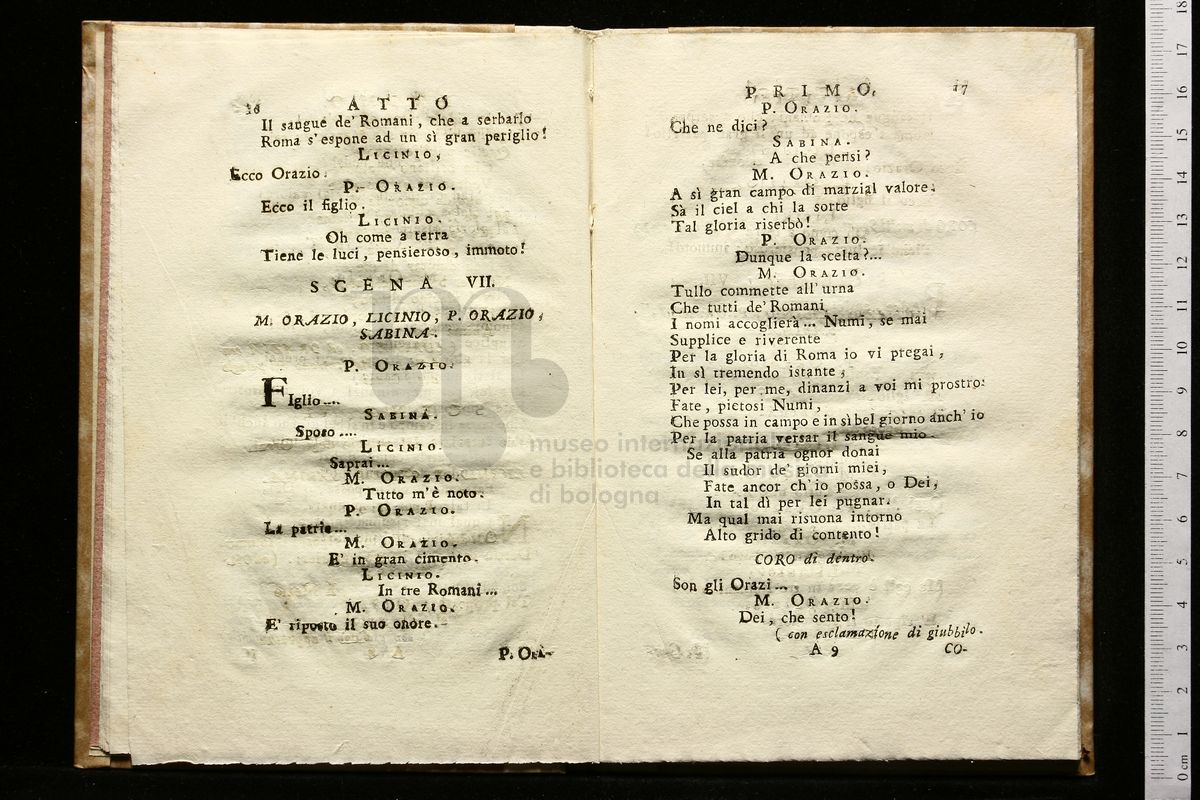 16 ATTO
Il sangue de' Romani, che a serbarlo
Roma s'espone ad un sì gran periglio!
LICINIO,
Ecco Orazio.
P. ORAZIO.
Ecco il figlio.
LICINIO.
Oh come a terra
Tiene le luci, pensieroso, immoto!
SCENA VII.
M. ORAZIO, LICINIO, P. ORAZIO,
SABINA.
P. ORAZIO.
FIglio....
SABINA.
Sposo....
LICINIO.
Saprai...
M. ORAZIO.
Tutto m'è noto.
P. ORAZIO.
La patria...
M. ORAZIO.
E' in gran cimento.
LICINIO.
In tre Romani...
M. ORAZIO.
E' riposto il suo onore.
P. ORA-
PRIMO. 17
P. ORAZIO.
Che ne dici?
SABINA.
A che pensi?
M. ORAZIO.
A sì gran campo di marzial valore.
Sà il ciel a chi la sorte
Tal gloria riserbò!
P. ORAZIO.
Dunque la scelta?...
M. ORAZIO.
Tullo commette all'urna
Che tutti de' Romani
I nomi accoglierà... Numi, se mai
Supplice e riverente
Per la gloria di Roma io vi pregai,
In sì tremendo istante,
Per lei, per me, dinanzi a voi mi prostro.
Fate, pietosi Numi,
Che possa in campo e in sì bel giorno anch' io
Per la patria versar il sangue mio.
Se alla patria ognor donai
Il sudor de' giorni miei,
Fate ancor ch'io possa, o Dei,
In tal dì per lei pugnar.
Ma qual mai risuona intorno
Alto grido di contento!
CORO di dentro.
Son gli Orazi...
M. ORAZIO.
Dei, che sento!
(con esclamazione di giubbilo.
A 9 CO-
museo inter
e biblioteca de
di bologna
0 cm 1 2 3 4 5 6 7 8 9 10 11 12 13 14 15 16 17 18